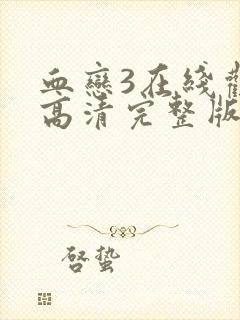 血戀3在綫觀
高清完整版
啓蟄